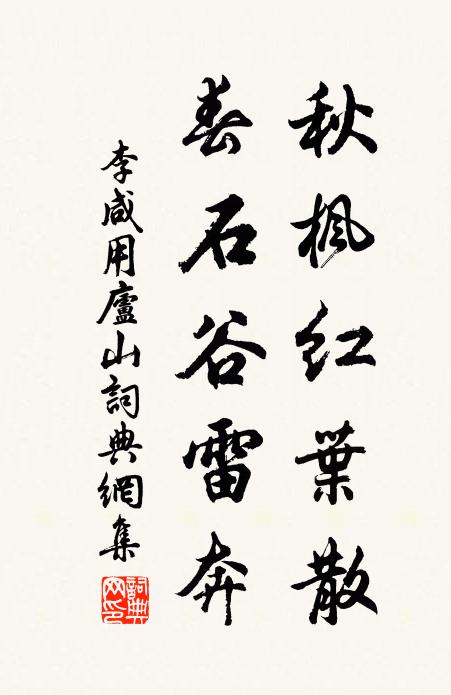 秋楓红葉散
春石谷雷奔
李咸用廬山詞典網集
詞典网印